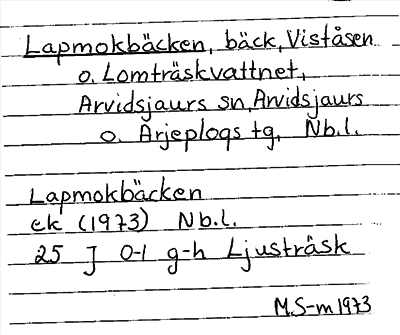 Lapmokbäcken, bäck, Viståsen
o. Lomträskvattnet,
Arvidsjaurs sn, Arvidsjaurs
o. Arjeplogs tg, Nb.l.
Lapmokbäcken
ek (1973) Nb.l.
25 J 0-1 g-h Ljusträsk
M.S-m 1973